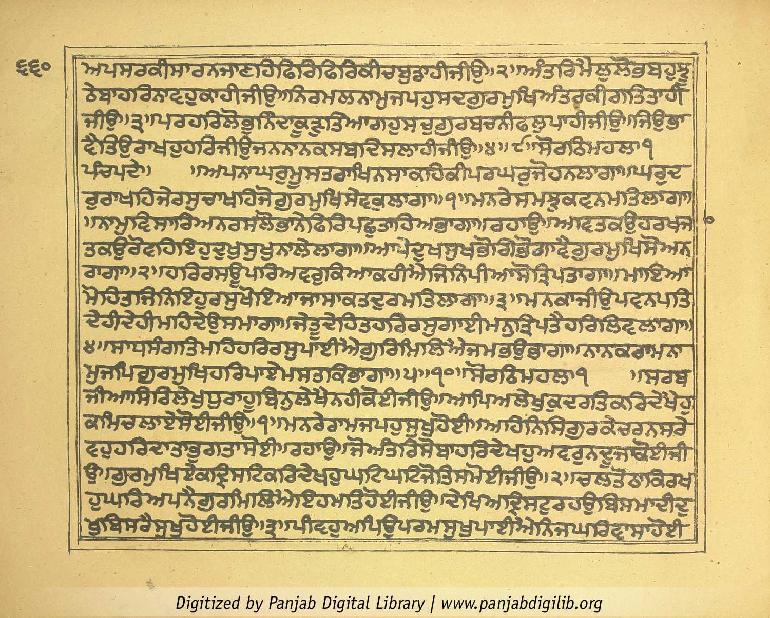 ੬੬੦
ਅਪਸਰਕੀਸਾਰਨਜਾਣਹਿਫਿਰਿਫਿਰਿਕੀਚਬੁਡਾਹੀਜੀਉ॥੨॥ਅੰਤਰਿਮੈਲੁਲੋਭਬਹੁਝੂ
ਠੇਬਾਹਰਿਨਾਵਹੁਕਾਹੀਜੀਉ॥ਨਿਰਮਲਨਾਮੁਜਪਹੁਸਦਗੁਰਮੁਖਿਅੰਤਰਕੀਗਤਿਤਾਹੀ
ਜੀਉ॥੩॥ਪਰਹਰਿਲੋਭੁਨਿੰਦਾਕੂੜੁਤਿਆਗਹੁਸਚੁਗੁਰਬਚਨੀਫਲੁਪਾਹੀਜੀਉ॥ਜਿਉਭਾ
ਵੈਤਿਉਰਾਖਹੁਹਰਿਜੀਉਜਨਨਾਨਕਸਬਦਿਸਲਾਹੀਜੀਉ॥੪॥੯॥ਸੋਰਠਿਮਹਲਾ੧
ਪੰਚਪਦੇ॥ ॥ਅਪਨਾਘਰੁਮੂਸਤਰਾਖਿਨਸਾਕਹਿਕੀਪਰਘਰੁਜੋਹਨਲਾਗਾ॥ਘਰੁਦ
ਰੁਰਾਖਹਿਜੇਰਸੁਚਾਖਹਿਜੋਗੁਰਮੁਖਿਸੇਵਕੁਲਾਗਾ॥੧॥ਮਨਰੇਸਮਝੁਕਵਨਮਤਿਲਾਗਾ
॥ਨਾਮੁਵਿਸਾਰਿਅਨਰਸਲੋਭਾਨੇਫਿਰਿਪਛੁਤਾਹਿਅਭਾਗਾ॥ਰਹਾਉ॥ਆਵਤਕਉਹਰਖਜਾ
ਤਕਉਰੋਵਹਿਇਹੁਦੁਖੁਸੁਖੁਨਾਲੇਲਾਗਾ॥ਆਪੇਦੁਖਸੁਖਭੋਗਿਭੋਗਾਵੈਗੁਰਮੁਖਿਸੋਅਨ
ਰਾਗਾ॥੨॥ਹਰਿਰਸਊਪਰਿਅਵਰੁਕਿਆਕਹੀਐਜਿਨਿਪੀਆਸੋਤ੍ਰਿਪਤਾਗਾ॥ਮਾਇਆ
ਮੋਹਿਤਜਿਨਿਇਹੁਰਸੁਖੋਇਆਜਾਸਾਕਤਦੁਰਮਤਿਲਾਗਾ॥੩॥ਮਨਕਾਜੀਉਪਵਨਪਤਿ
ਦੇਹੀਦੇਹੀਮਹਿਦੇਉਸਮਾਗਾ॥ਜੇਤੂਦੇਹਿਤਹਰਿਰਸੁਗਾਈਮਨੁਤ੍ਰਿਪਤੈਹਰਿਲਿਵਲਾਗਾ॥
੪॥ਸਾਧਸੰਗਤਿਮਹਿਹਰਿਰਸੁਪਾਈਐਗੁਰਿਮਿਲਿਐਜਮਭਉਭਾਗਾ॥ਨਾਨਕਰਾਮਨਾ
ਮੁਜਪਿਗੁਰਮੁਖਿਹਰਿਪਾਏਮਸਤਕਿਭਾਗਾ॥੫॥੧੦॥ਸੋਰਠਿਮਹਲਾ੧ ॥ਸਰਬ
ਜੀਆਸਿਰਿਲੇਖੁਧੁਰਾਹੂਬਿਨੁਲੇਖੈਨਹੀਕੋਈਜੀਉ॥ਆਪਿਅਲੇਖੁਕੁਦਰਤਿਕਰਿਦੇਖੈਹੁ
ਕਮਿਚਲਾਏਸੋਈਜੀਉ॥੧॥ਮਨਰੇਰਾਮਜਪਹੁਸੁਖੁਹੋਈ॥ਅਹਿਨਿਸਿਗੁਰਕੇਚਰਨਸਰੇ
ਵਹੁਹਰਿਦਾਤਾਭੁਗਤਾਸੋਈ॥ਰਹਾਉ॥ਜੋਅੰਤਰਿਸੋਬਾਹਰਿਦੇਖਹੁਅਵਰੁਨਦੂਜਾਕੋਈਜੀ
ਉ॥ਗੁਰਮੁਖਿਏਕਦ੍ਰਿਸਟਿਕਰਿਦੇਖਹੁਘਟਿਘਟਿਜੋਤਿਸਮੋਈਜੀਉ॥੨॥ਚਲਤੌਠਾਕਿਰਖ
ਹੁਘਰਿਅਪਨੈਗੁਰਮਿਲਿਐਇਹਮਤਿਹੋਈਜੀਉ॥ਦੇਖਿਅਦ੍ਰਿਸਟੁਰਹਉਬਿਸਮਾਦੀਦੁ
ਖੁਬਿਸਰੈਸੁਖੁਹੋਈਜੀਉ॥੩॥ਪੀਵਹੁਅਪਿਉਪਰਮਸੁਖੁਪਾਈਐਨਿਜਘਰਿਵਾਸਾਹੋਈ
Digitized by Panjab Digital Library | www.panjabdigilib.org